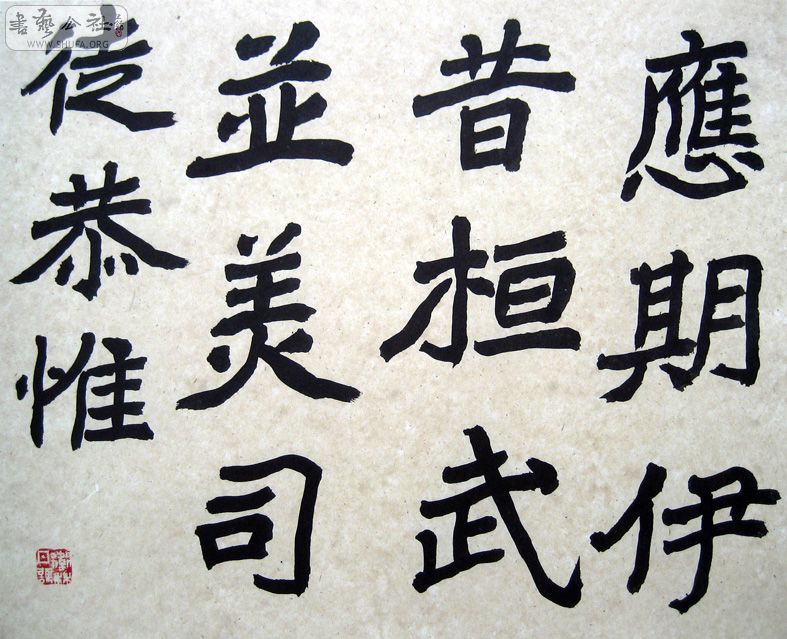 應期伊
昔桓武
並美司
徒恭惟
書藝公社
WWW.SHUFA.ORG